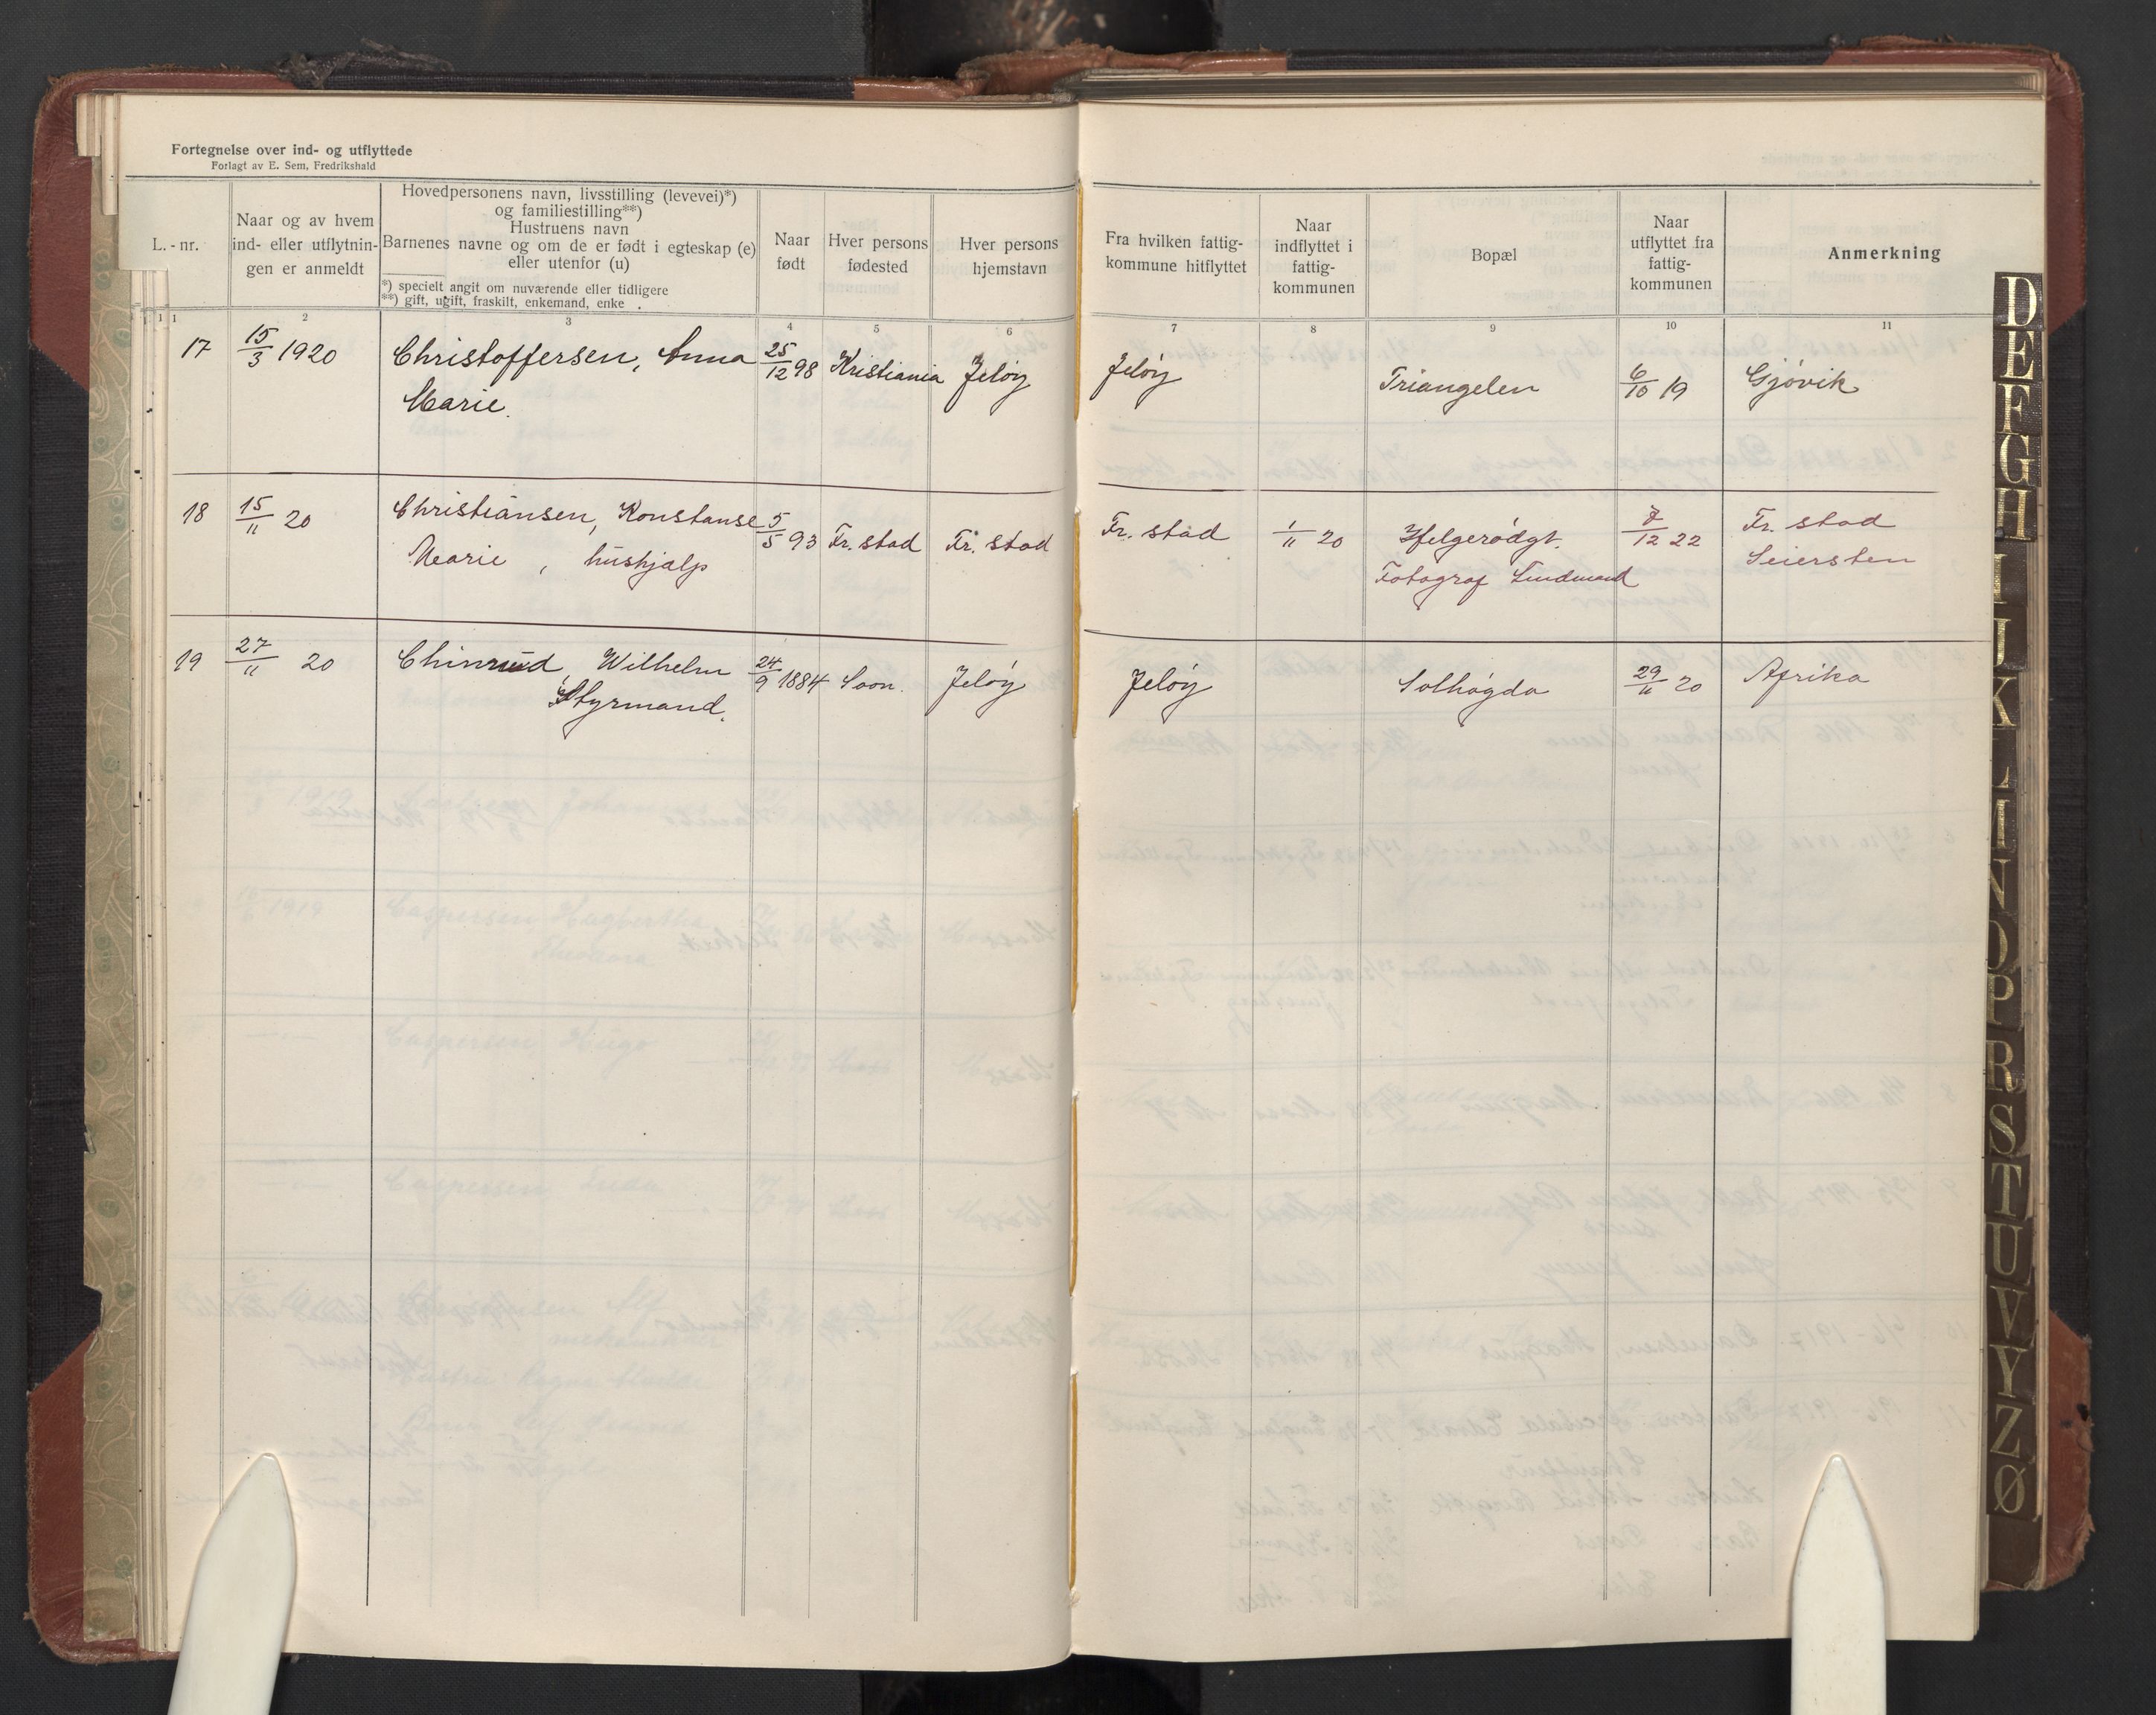 Fortegnelse over ind- og utflyttede
Forlagt av E. Sem, Fredrikshald
L.-nr.
Naar og av hvem
ind- eller utflytnin-
gen er anmeldt
Hovedpersonens navn, livsstilling (levevei)*)
og familiestilling**)
Hustruens navn
Barnenes navne og om de er født i egteskap (e)
eller utenfor (u)
*) specielt angit om nuværende eller tidligere
**) gift, ugift, fraskilt, enkemand, enke .
Naar
født
Hver persons
fødested
Hver persons
hjemstavn
Fra hvilken fattig-
kommune hitflyttet
Naar
indflyttet i
fattig-
kommunen
Bopæl
Naar
utflyttet fra
fattig-
kommunen
Anmerkning
1 1 2 3 4 5 6 7 8 9 10 11
17 15/3 1920 Christoffersen, Anna 25/12 98 Kristiania Jeløy Jeløy Triangelen 6/10 19 Gjøvik
Marie.
18 15/11 20 Christiansen, Konstanse 5/5 93 Fr. stad Fr. stad Fr. stad 1/11 20 Helgerødgt. 7/12 22 Fr. stad
Marie, hushjælp Fotograf Lindmand Seiersten
19 27/11 20 Chinrud, Wilhelm 24/9 1884 Soon. Jeløy Jeløy Solhøgda 29/11 20 Afrika
Styrmand.
D
E
F
G
H
I
J
K
L
M
N
O
P
R
S
T
U
V
Y
Z
Ø